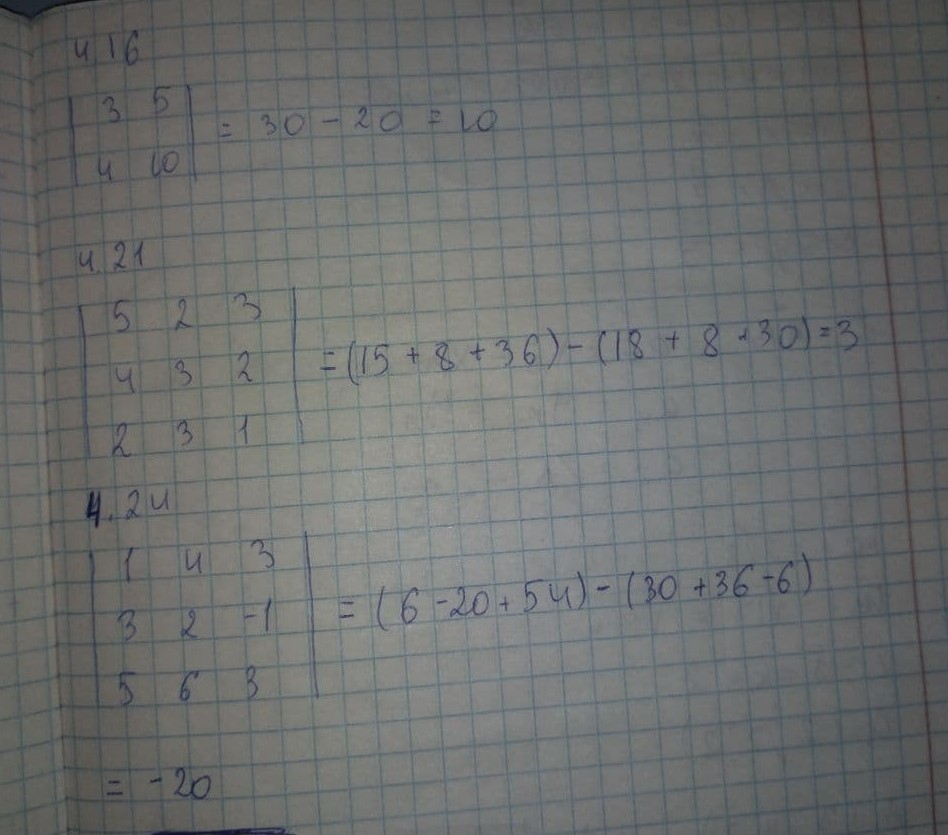 4.16
| 3 5 |
| 4 10 | = 30 - 20 = 10
4.21
| 5 2 3 |
| 4 3 2 | = (15 + 8 + 36) - (18 + 8 + 30) = 3
| 2 3 1 |
4.24
| 1 4 3 |
| 3 2 -1 | = (6 - 20 + 54) - (30 + 36 - 6)
| 5 6 3 |
= -20